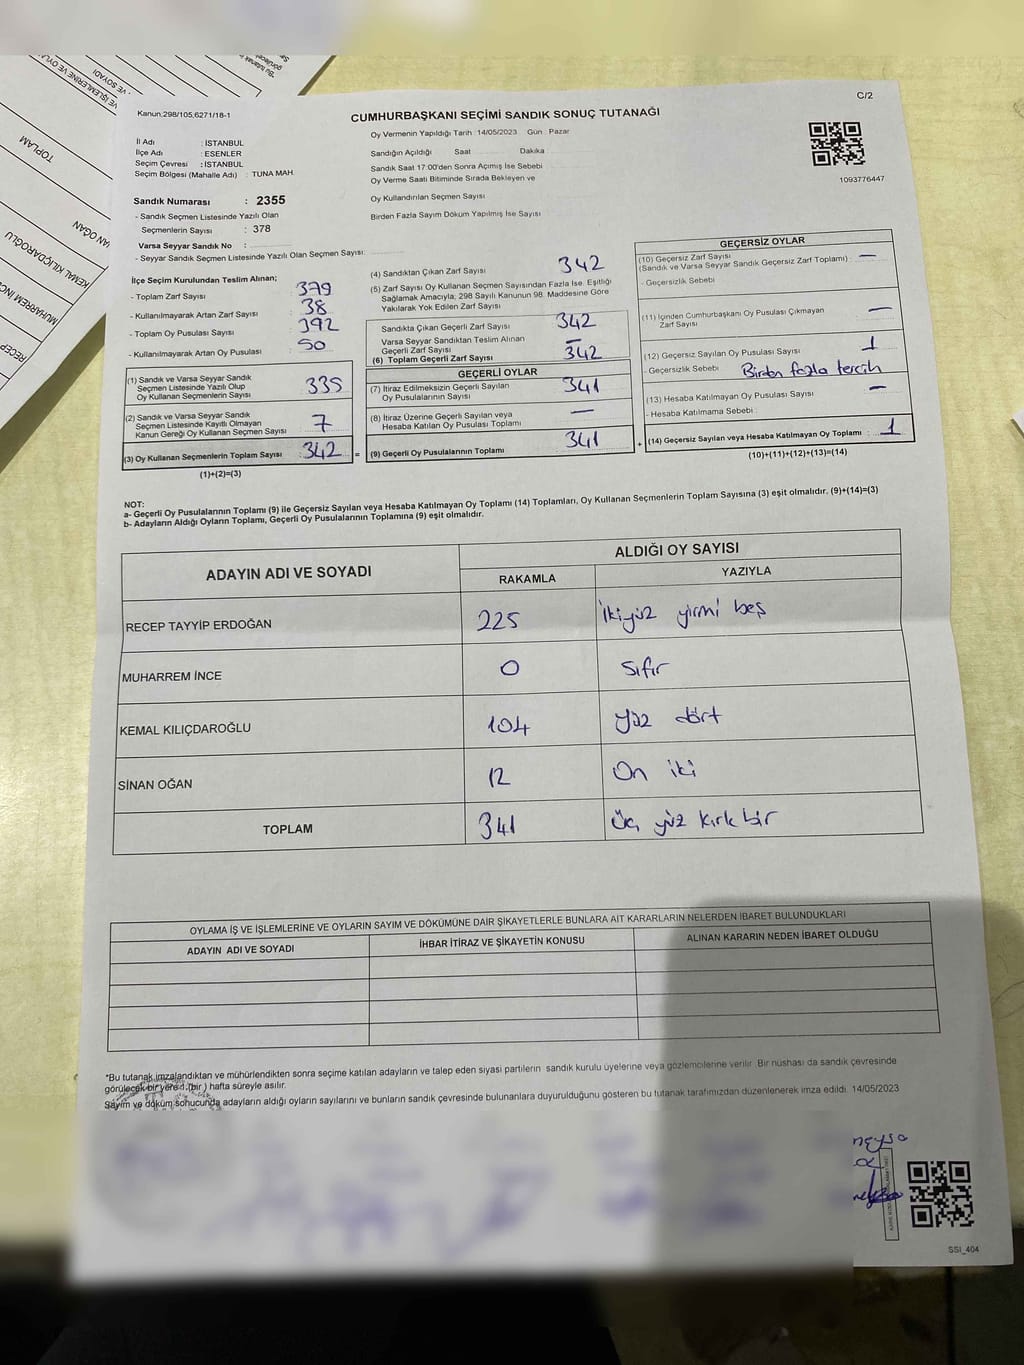 C/2
Kanun,298/105,6271/18-1
CUMHURBAŞKANI SEÇİMİ SANDIK SONUÇ TUTANAĞI
Oy Vermenin Yapıldığı Tarih : 14/05/2023 Gün : Pazar
İl Adı : İSTANBUL
İlçe Adı : ESENLER
Seçim Çevresi : İSTANBUL
Seçim Bölgesi (Mahalle Adı) : TUNA MAH.
Sandığın Açıldığı Saat Dakika
Sandık Saat 17:00'den Sonra Açımış İse Sebebi
Oy Verme Saati Bitiminde Sırada Bekleyen ve
Oy Kullandırılan Seçmen Sayısı
Birden Fazla Sayım Döküm Yapılmış İse Sayısı
1093776447
Sandık Numarası : 2355
- Sandık Seçmen Listesinde Yazılı Olan
Seçmenlerin Sayısı : 378
Varsa Seyyar Sandık No :
- Seyyar Sandık Seçmen Listesinde Yazılı Olan Seçmen Sayısı:
İlçe Seçim Kurulundan Teslim Alınan;
- Toplam Zarf Sayısı : 379
- Kullanılmayarak Artan Zarf Sayısı : 38
- Toplam Oy Pusulası Sayısı : 392
- Kullanılmayarak Artan Oy Pusulası : 50
(1) Sandık ve Varsa Seyyar Sandık
Seçmen Listesinde Yazılı Olup
Oy Kullanan Seçmenlerin Sayısı : 335
(2) Sandık ve Varsa Seyyar Sandık
Seçmen Listesinde Kayıtlı Olmayan
Kanun Gereği Oy Kullanan Seçmen Sayısı : 7
(3) Oy Kullanan Seçmenlerin Toplam Sayısı : 342 =
(1)+(2)=(3)
(4) Sandıktan Çıkan Zarf Sayısı 342
(5) Zarf Sayısı Oy Kullanan Seçmen Sayısından Fazla İse, Eşitliği
Sağlamak Amacıyla, 298 Sayılı Kanunun 98. Maddesine Göre
Yakılarak Yok Edilen Zarf Sayısı
Sandıkta Çıkan Geçerli Zarf Sayısı : 342
Varsa Seyyar Sandıktan Teslim Alınan
Geçerli Zarf Sayısı : —
(6) Toplam Geçerli Zarf Sayısı : 342
GEÇERLİ OYLAR
(7) İtiraz Edilmeksizin Geçerli Sayılan
Oy Pusulasının Sayısı : 341
(8) İtiraz Üzerine Geçerli Sayılan veya
Hesaba Katılan Oy Pusulası Toplamı : —
(9) Geçerli Oy Pusulalarının Toplamı : 341 +
GEÇERSİZ OYLAR
(10) Geçersiz Zarf Sayısı
(Sandık ve Varsa Seyyar Sandık Geçersiz Zarf Toplamı) : —
- Geçersizlik Sebebi
(11) İçinden Cumhurbaşkanı Oy Pusulası Çıkmayan
Zarf Sayısı : —
(12) Geçersiz Sayılan Oy Pusulası Sayısı : 1
- Geçersizlik Sebebi Birden fazla tercih
(13) Hesaba Katılmayan Oy Pusulası Sayısı : —
- Hesaba Katılmama Sebebi :
(14) Geçersiz Sayılan veya Hesaba Katılmayan Oy Toplamı : 1
(10)+(11)+(12)+(13)=(14)
NOT:
a- Geçerli Oy Pusulalarının Toplamı (9) ile Geçersiz Sayılan veya Hesaba Katılmayan Oy Toplamı (14) Toplamları, Oy Kullanan Seçmenlerin Toplam Sayısına (3) eşit olmalıdır. (9)+(14)=(3)
b- Adayların Aldığı Oyların Toplamı, Geçerli Oy Pusulalarının Toplamına (9) eşit olmalıdır.
ADAYIN ADI VE SOYADI ALDIĞI OY SAYISI
RAKAMLA YAZIYLA
RECEP TAYYİP ERDOĞAN 225 İkiyüz yirmi beş
MUHARREM İNCE 0 Sıfır
KEMAL KILIÇDAROĞLU 104 yüz dört
SİNAN OĞAN 12 On iki
TOPLAM 341 Üç yüz kırk bir
OYLAMA İŞ VE İŞLEMLERİNE VE OYLARIN SAYIM VE DÖKÜMÜNE DAİR ŞİKAYETLERLE BUNLARA AİT KARARLARIN NELERDEN İBARET BULUNDUKLARI
ADAYIN ADI VE SOYADI İHBAR İTİRAZ VE ŞİKAYETİN KONUSU ALINAN KARARIN NEDEN İBARET OLDUĞU
*Bu tutanak imzalandıktan ve mühürlendikten sonra seçime katılan adayların ve talep eden siyasi partilerin sandık kurulu üyelerine veya gözlemcilerine verilir. Bir nüshası da sandık çevresinde
görülecek bir yere 1 (bir ) hafta süreyle asılır.
Sayım ve döküm sonucunda adayların aldığı oyların sayılarını ve bunların sandık çevresinde bulunanlara duyurulduğunu gösteren bu tutanak tarafımızdan düzenlenerek imza edildi. 14/05/2023
neysa
SSI_404
TOPLAM
AN OĞAN
KEMAL KILIÇDAROĞLU
MUHARREM İNC
RECEP
VE SOYADI